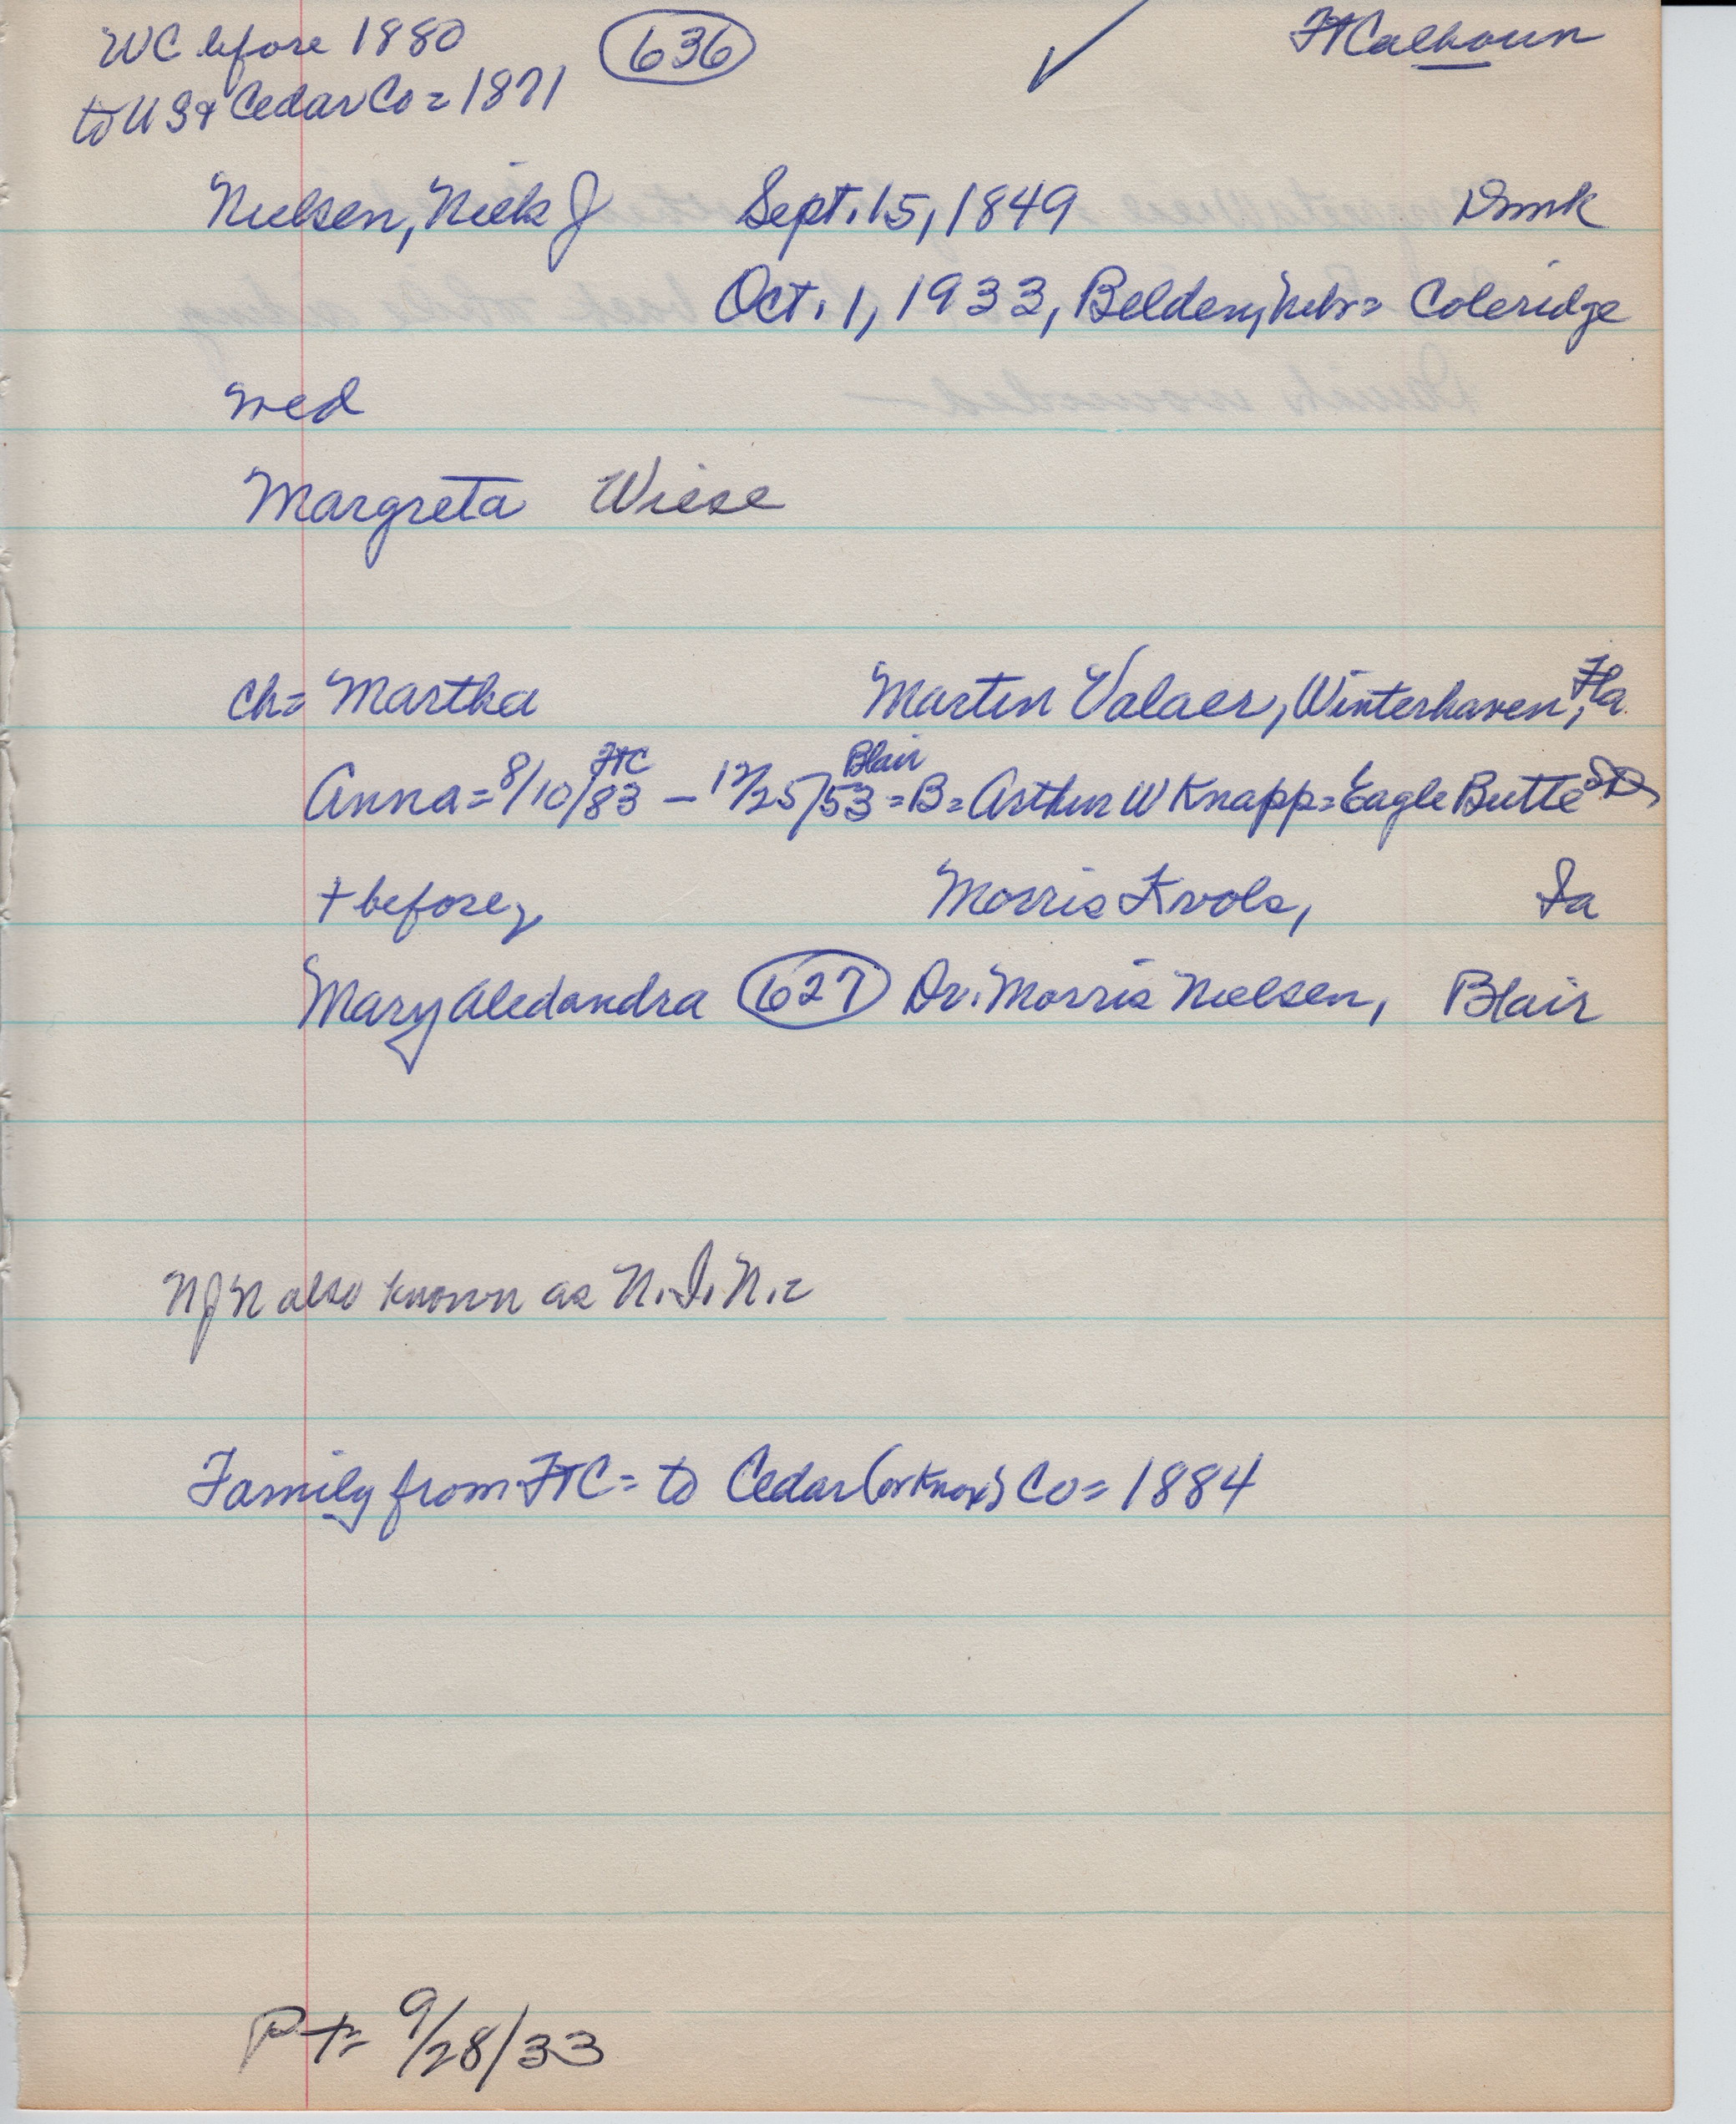 WC before 1880 (636) ✓ FtCalhoun
to US & Cedar Co = 1871
Nielsen, Niels J Sept. 15, 1849 Dnmk
Oct. 1, 1933, Belden, Nebr = Coleridge
wed
Margreta Wiese
ch = Martha Martin Valaer, Winterhaven, Fla.
Anna = 8/10/83 FTC – 12/25/53 Blair = B = Arthur W Knapp = Eagle Butte SD
+ before, Morris Kvols, Ia
Mary Aledandra (627) Dr. Morris Nielsen, Blair
NJN also known as N. I. N. =
Family from FTC = to Cedar (or Knox) Co = 1884
P + = 9/28/33